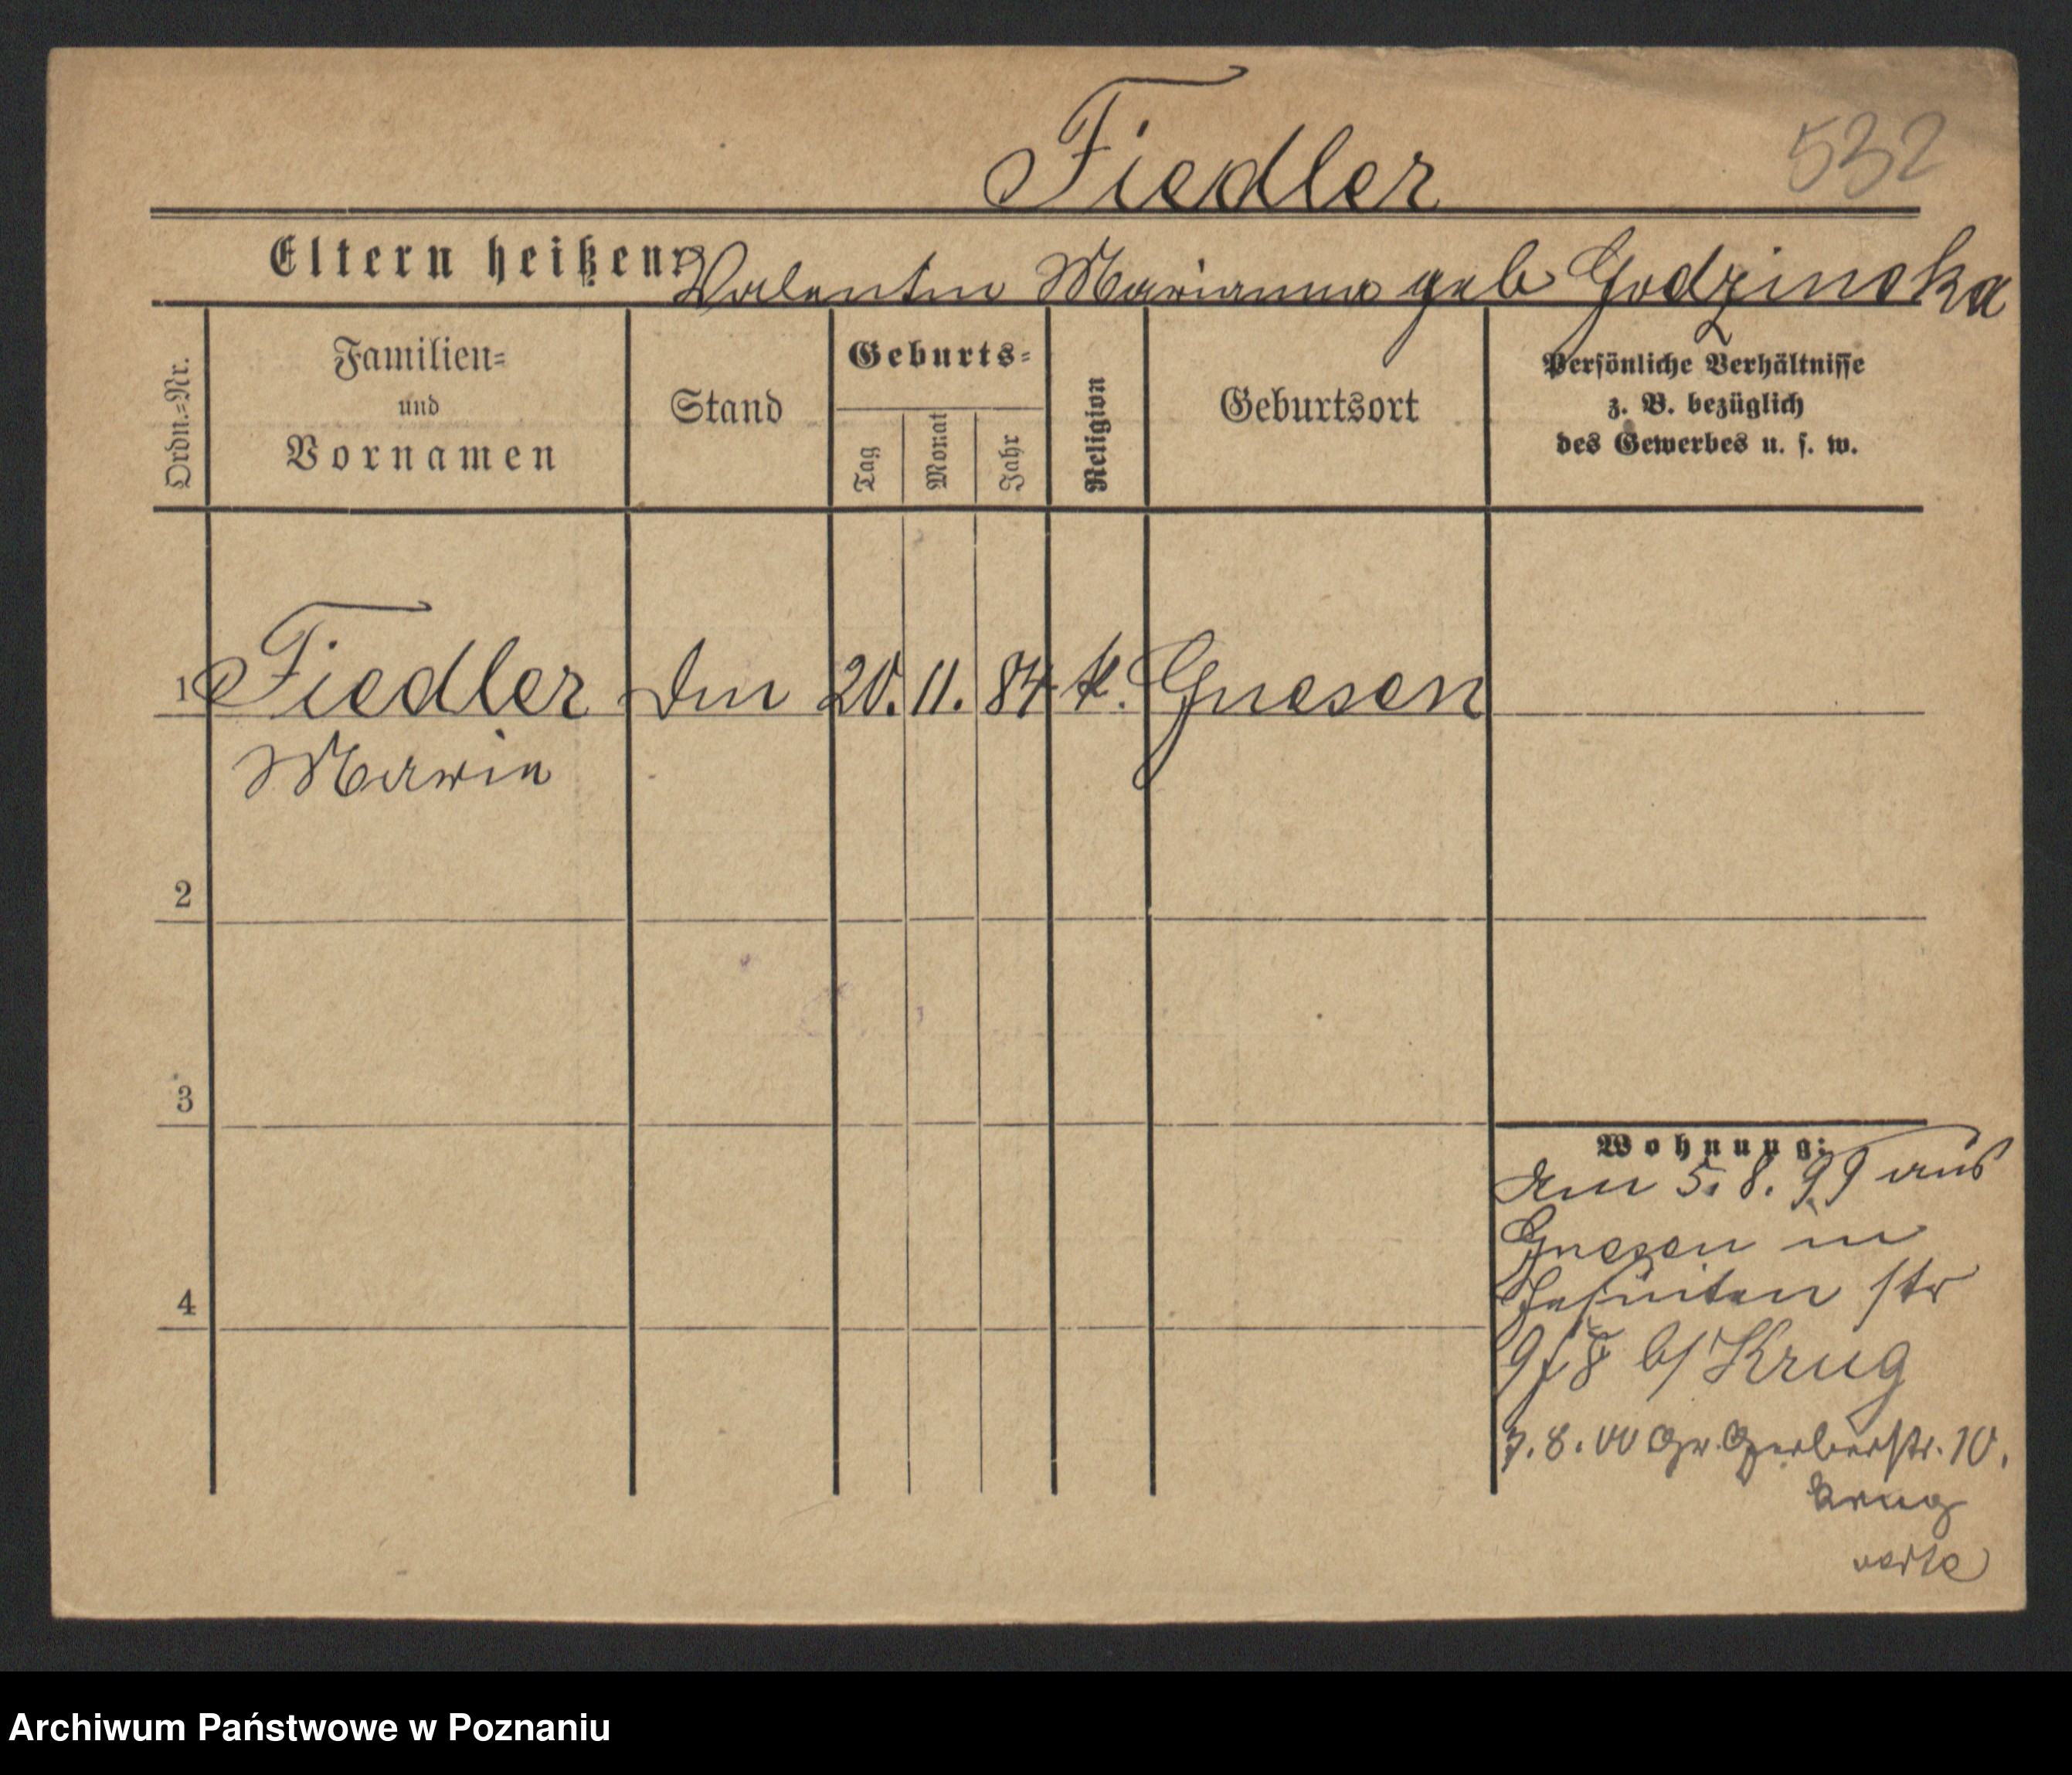 Fiedler
532
Eltern heißen: Valentin Marianna geb Godzinska
Ordn.=Nr.
Familien=
und
Vornamen
Stand
Geburts=
Tag
Monat
Jahr
Religion
Geburtsort
Persönliche Verhältnisse
z. B. bezüglich
des Gewerbes u. s. w.
1 Fiedler 20. 11. 84 k. Gnesen
Maria
2
3
4
Wohnung:
Am 5. 8. 99 aus
Gnesen in
Jesuiten str
b/ Krug
7. 8. 00 Gr. Gerberstr. 10.
Krug
verte
Archiwum Państwowe w Poznaniu